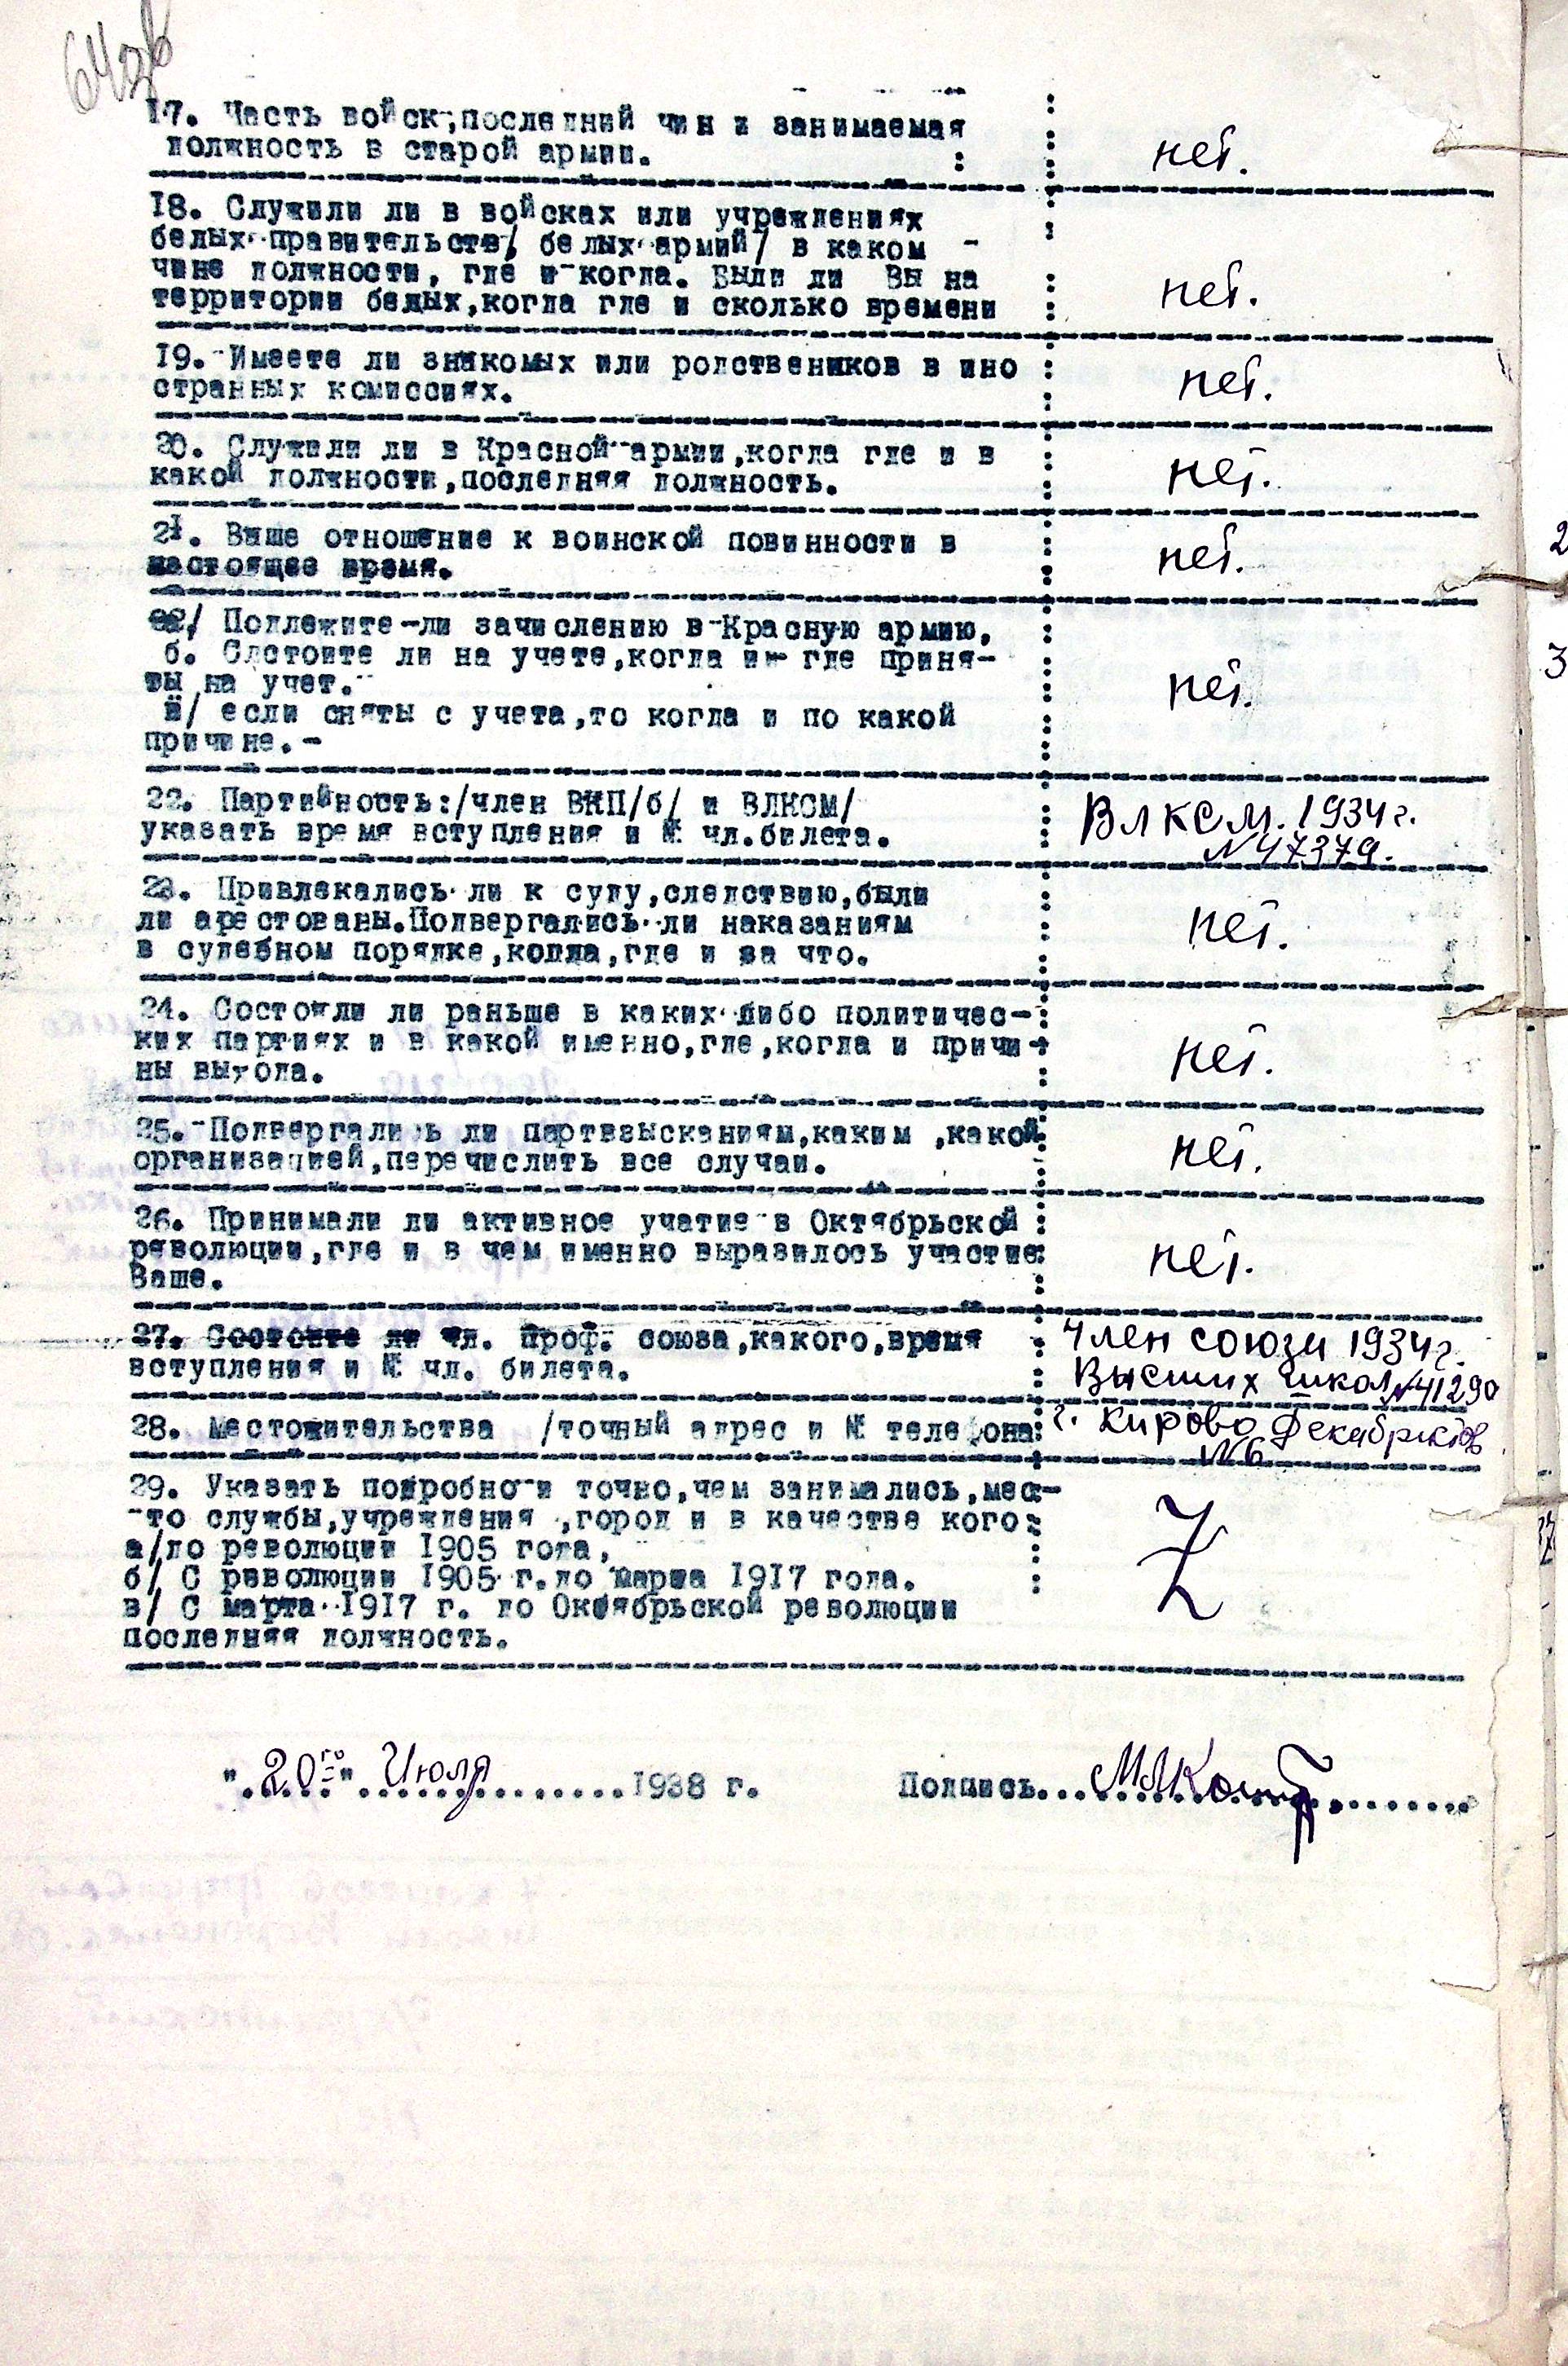 64об
17. Часть войск,последний чин и занимаемая
должность в старой армии.
нет.
18. Служили ли в войсках или учреждениях
белых правительств/ белых армий/ в каком -
чине должности, где и когда. Были ли Вы на
территории белых,когда где и сколько времени
нет.
19. Имеете ли знакомых или родствеников в ино
странных комиссиях.
нет.
20. Служили ли в Красной армии,когда где и в
какой должности,последняя должность.
нет.
21. Ваше отношение к воинской повинности в
настоящее время.
нет.
Подлежите-ли зачислению в Красную армию,
б. Состоите ли на учете,когда и где приня-
ты на учет.
в/ если сняты с учета,то когда и по какой
причине.-
нет.
22. Партийность:/член ВКП/б/ и ВЛКСМ/
указать время вступления и № чл.билета.
ВЛКСМ. 1934г.
№47379.
23. Привлекались ли к суду,следствию,были
ли арестованы.Подвергались ли наказаниям
в судебном порядке,когда,где и за что.
нет.
24. Состояли ли раньше в каких либо политичес-
ких партиях и в какой именно,где,когда и причи
ны выхода.
нет.
25. Подвергались ли партвзысканиям,каким ,какой
организацией,перечислить все случаи.
нет.
26. Принимали ли активное учатие в Октябрьской
революции,где и в чем именно выразилось участие
Ваше.
нет.
27. Состоите ли чл. проф. союза,какого,время
вступления и № чл. билета.
Член союза 1934г.
Высших школ №41290
28. Местожительства /точный адрес и № телефона
г. Кирово Декабристов
№6
29. Указать подробно и точно,чем занимались,мес-
-то службы,учреждения ,город и в качестве кого:
а/до революции 1905 года,
б/ С революции 1905 г.до марта 1917 года.
в/ С марта 1917 г. до Октябрьской революции
последняя должность.
Z
".20го" Июля 1938 г. Подпись